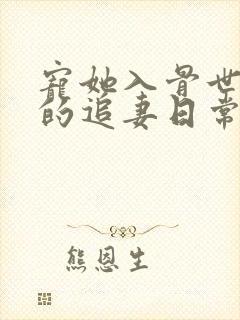 寵她入骨世
的追妻日常
熊恩生